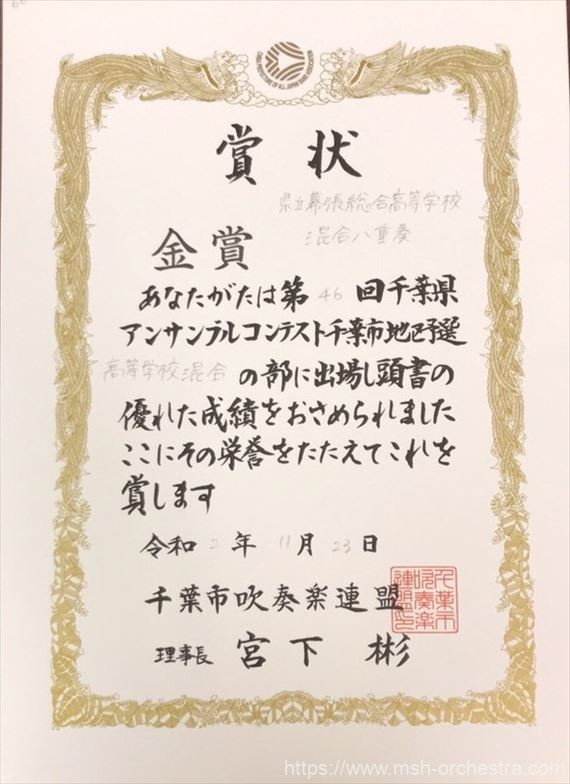 CHIBA PREFECTURE OF ALL JAPAN BAND ASSOCIATION
賞状
県立幕張総合高等学校
混合八重奏
金賞
あなたがたは第46回千葉県
アンサンブルコンテスト千葉市地区予選
高等学校混合の部に出場し頭書の
優れた成績をおさめられました
ここにその栄誉をたたえてこれを
賞します
令和2年11月23日
千葉市吹奏楽連盟
千葉市吹奏楽連盟印
理事長 宮下 彬
https://www.msh-orchestra.com